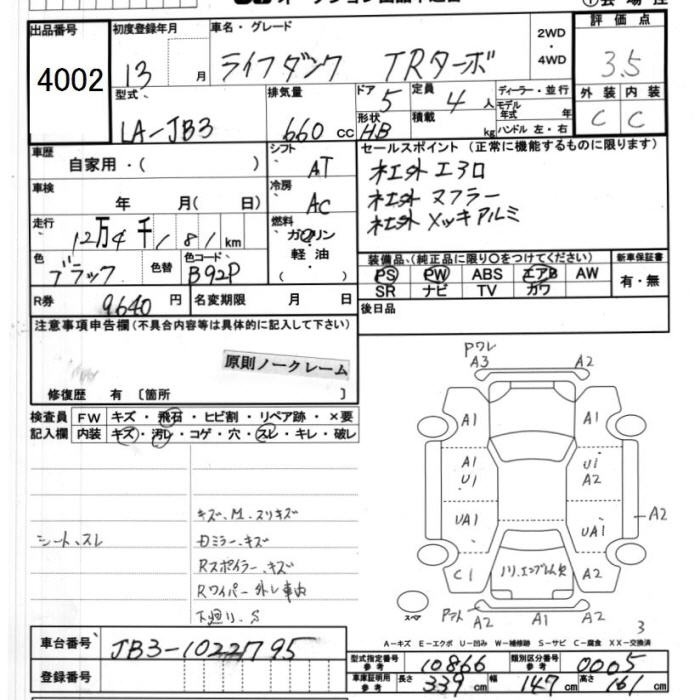 出品番号 初度登録年月 車名・グレード 2WD・4WD 評価点
4002 13 月 ライフダンク TRターボ 3.5
型式 排気量 ドア 形状 定員 積載 ディーラー・並行 モデル年式 年 ハンドル 左・右 外装 内装
LA-JB3 660 cc 5 HB 4 人 kg C C
車歴 自家用・( ) シフト AT セールスポイント (正常に機能するものに限ります)
車検 年 月( 日) 冷房 AC 社外エアロ
社外 マフラー
社外 メッキアルミ
走行 12万4千181km 燃料 ガソリン 軽油 ( )
色 ブラック 色替 色コード B92P 装備品、(純正品に限り〇をつけてください) 新車保証書
PS PW ABS エアB AW 有・無
SR ナビ TV カワ
R券 9640円 名変期限 月 日 後日品
注意事項申告欄(不具合内容等は具体的に記入して下さい)
原則ノークレーム
修復歴 有 〔箇所 〕
検査員 FW キズ・飛石・ヒビ割・リペア跡・×要
記入欄 内装 キズ・汚レ・コゲ・穴・スレ・キレ・破レ
キズ、M.スリキズ
シート、スレ Dミラー、キズ
Rスポイラー、キズ
Rワイパー外し車内
下廻り、S
Pワレ
A3 A2
A1 A1
A1 U1 U1 A2
UA1 UA1 A2
C1 ノリ、エンブレム欠 A2
スペア A2 A1 A2
3
A-キズ E-エクボ U-凹み W-補修跡 S-サビ C-腐食 XX-交換済
車台番号 JB3-1022795
型式指定番号 参考 10866 類別区分番号 参考 0005
登録番号 車庫証明用 参考 長さ 339cm 幅 147cm 高さ 161cm